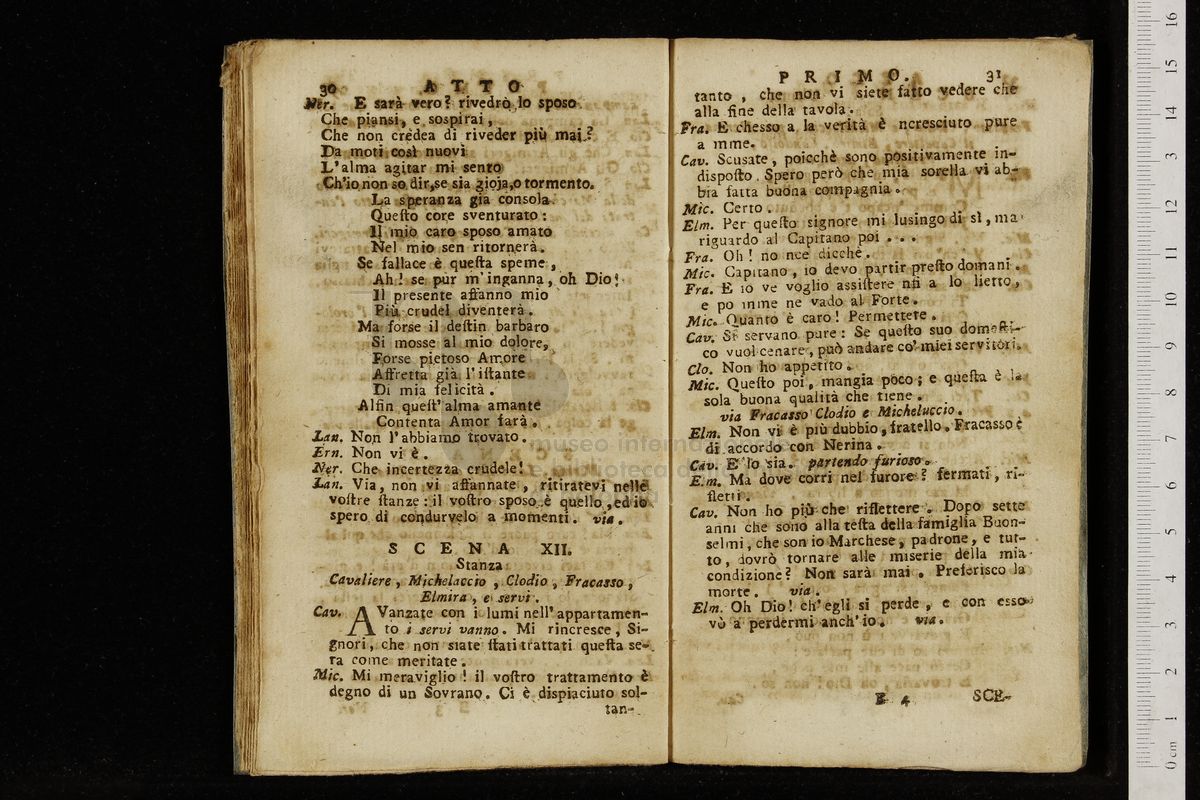 30 ATTO
Ner. E sarà vero? rivedrò lo sposo
Che piansi, e sospirai,
Che non credea di riveder più mai?
Da moti così nuovi
L'alma agitar mi sento
Ch'io non so dir, se sia gioja, o tormento.
La speranza già consola
Questo core sventurato:
Il mio caro sposo amato
Nel mio sen ritornerà.
Se fallace è questa speme,
Ah! se pur m'inganna, oh Dio!
Il presente affanno mio
Più crudel diventerà.
Ma forse il destin barbaro
Si mosse al mio dolore,
Forse pietoso Amore
Affretta già l'istante
Di mia felicità.
Alfin quest'alma amante
Contenta Amor farà.
Lan. Non l'abbiamo trovato.
Ern. Non vi è.
Ner. Che incertezza crudele!
Lan. Via, non vi affannate, ritiratevi nelle
vostre stanze: il vostro sposo è quello, ed io
spero di condurvelo a momenti. via.
SCENA XII.
Stanza
Cavaliere, Michelaccio, Clodio, Fracasso,
Elmira, e servi.
Cav. AVanzate con i lumi nell'appartamen-
to i servi vanno. Mi rincresce, Si-
gnori, che non siate stati trattati questa se-
ra come meritate.
Mic. Mi meraviglio! il vostro trattamento è
degno di un Sovrano. Ci è dispiaciuto sol-
tan-
PRIMO. 31
tanto, che non vi siete fatto vedere che
alla fine della tavola.
Fra. E chesso a la verità è ncresciuto pure
a mme.
Cav. Scusate, poicchè sono positivamente in-
disposto. Spero però che mia sorella vi ab-
bia fatta buona compagnia.
Mic. Certo.
Elm. Per questo signore mi lusingo di sì, ma
riguardo al Capitano poi ...
Fra. Oh! no nce dicchè.
Mic. Capitano, io devo partir presto domani.
Fra. E io ve voglio assistere nfi a lo lietto,
e po mme ne vado al Forte.
Mic. Quanto è caro! Permettete.
Cav. Si servano pure: Se questo suo domesti-
co vuol cenare, può andare co' miei servitori.
Clo. Non ho appetito.
Mic. Questo poi, mangia poco; e questa è la
sola buona qualità che tiene.
via Fracasso Clodio e Micheluccio.
Elm. Non vi è più dubbio, fratello. Fracasso è
di accordo con Nerina.
Cav. E lo sia. partendo furioso.
E.m. Ma dove corri nel furore? fermati, ri-
fletti.
Cav. Non ho più che riflettere. Dopo sette
anni che sono alla testa della famiglia Buon-
selmi, che son io Marchese, padrone, e tut-
to, dovrò tornare alle miserie della mia
condizione? Non sarà mai. Preferisco la
morte. via.
Elm. Oh Dio! ch'egli si perde, e con esso
vò a perdermi anch'io. via.
B 4 SCE-